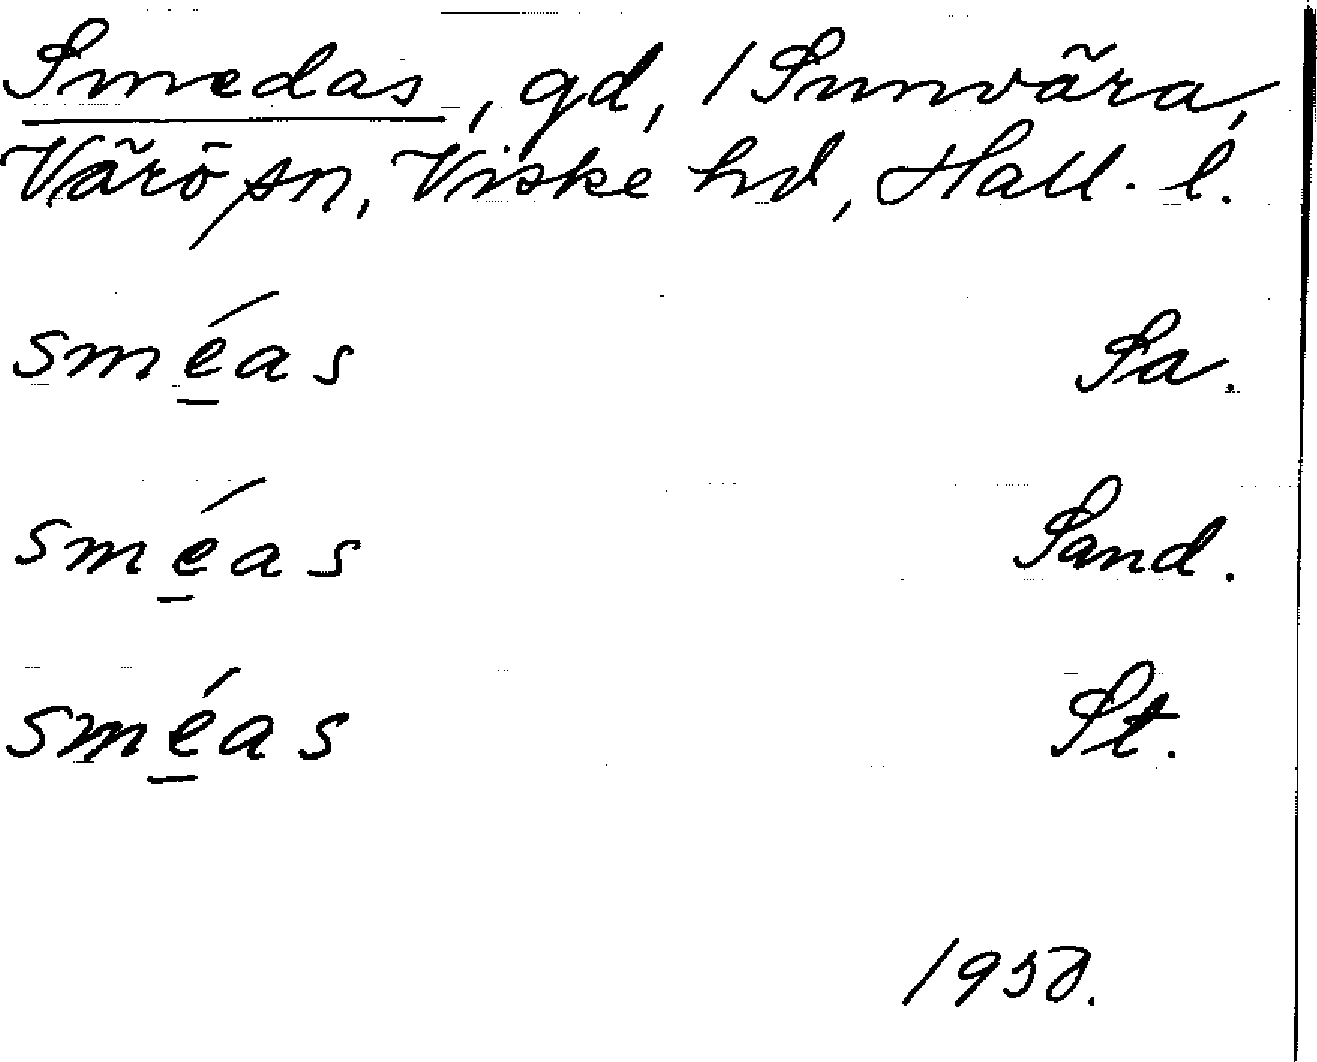 Smedas, gd, 1 Sunnvära,
Värö sn, Viske hd, Hall. l.
sméas Sa.
sméas Sand.
sméas St.
1950.